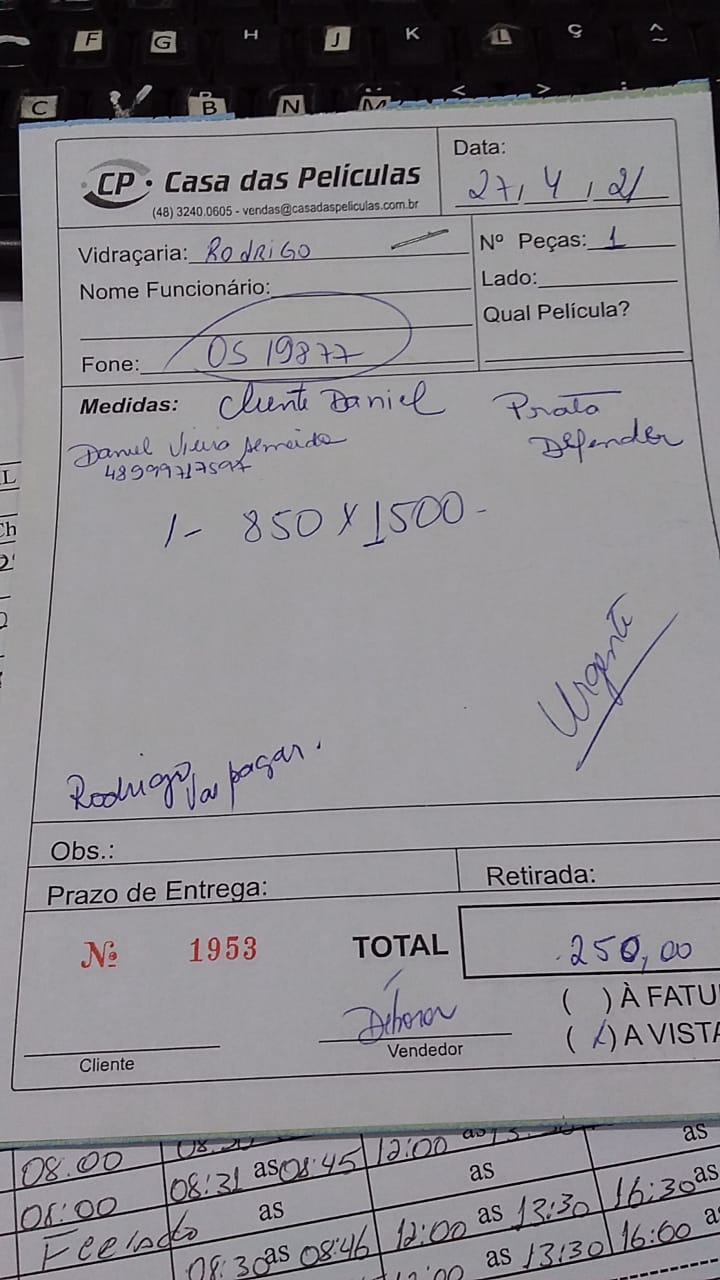 F G H J K L Ç ^ ~
C V B N M < >
CP · Casa das Películas
(48) 3240.0605 - vendas@casadaspeliculas.com.br
Data:
27, 4, 21
Vidraçaria: RODRIGO
Nº Peças: 1
Nome Funcionário:
Lado:
Qual Película?
Fone: OS 19877
Medidas: Cliente Daniel
Prata
Defender
Daniel Vieira Almeida
48999717597
1- 850 X 1500-
Urgente
Rodrigo vai pagar.
Obs.:
Prazo de Entrega:
Retirada:
Nº 1953
TOTAL
250,00
Débora
( ) À FATU
(X) A VISTA
Cliente
Vendedor
08:00
08:31 as 08:45 12:00 as
as
08:00
as
as
16:30 as
Feriado
08:30 as 08:46 12:00 as 13:30 16:00 a
as 13:30